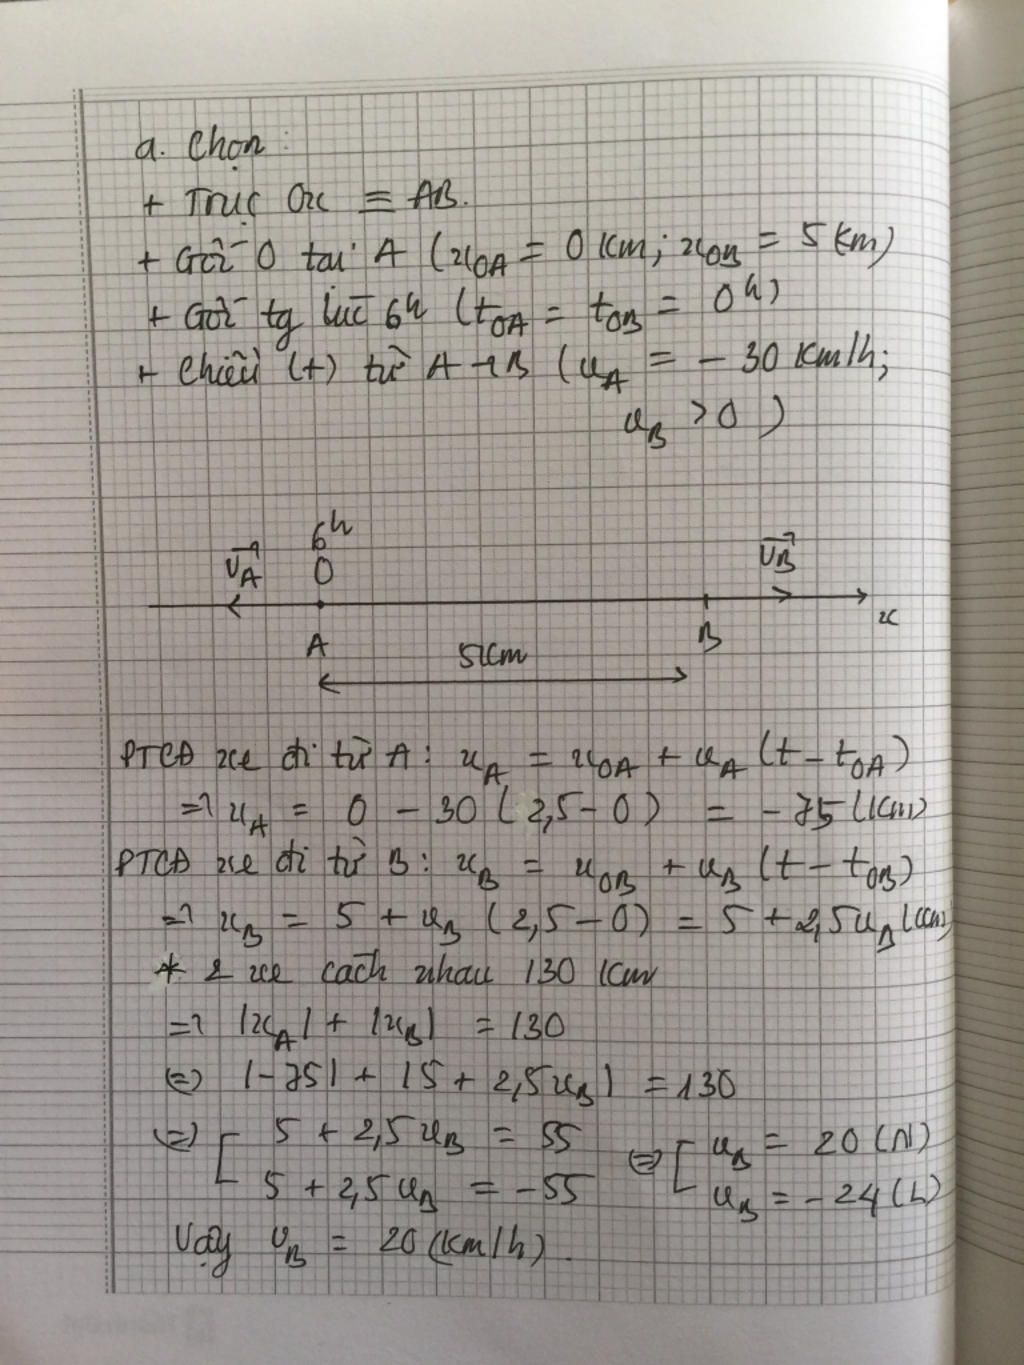 a. Chọn:
+ Trục Ox ≡ AB.
+ Gốc O tại A (x₀A = 0 km; x₀B = 5 km)
+ Gốc tg lúc 6h (t₀A = t₀B = 0h)
+ Chiều (+) từ A → B (vA = - 30 km/h;
vB > 0)
6h
vA O vB
A B x
5km
PTCĐ xe đi từ A: xA = x₀A + vA (t - t₀A)
=> xA = 0 - 30 (2,5 - 0) = - 75 (km)
PTCĐ xe đi từ B: xB = x₀B + vB (t - t₀B)
=> xB = 5 + vB (2,5 - 0) = 5 + 2,5vB (km)
* 2 xe cách nhau 130 km
=> |xA| + |xB| = 130
<=> |-75| + |5 + 2,5vB| = 130
<=> [ 5 + 2,5vB = 55 <=> [ vB = 20 (N)
5 + 2,5vB = -55 vB = -24 (L)
Vậy vB = 20 (km/h).